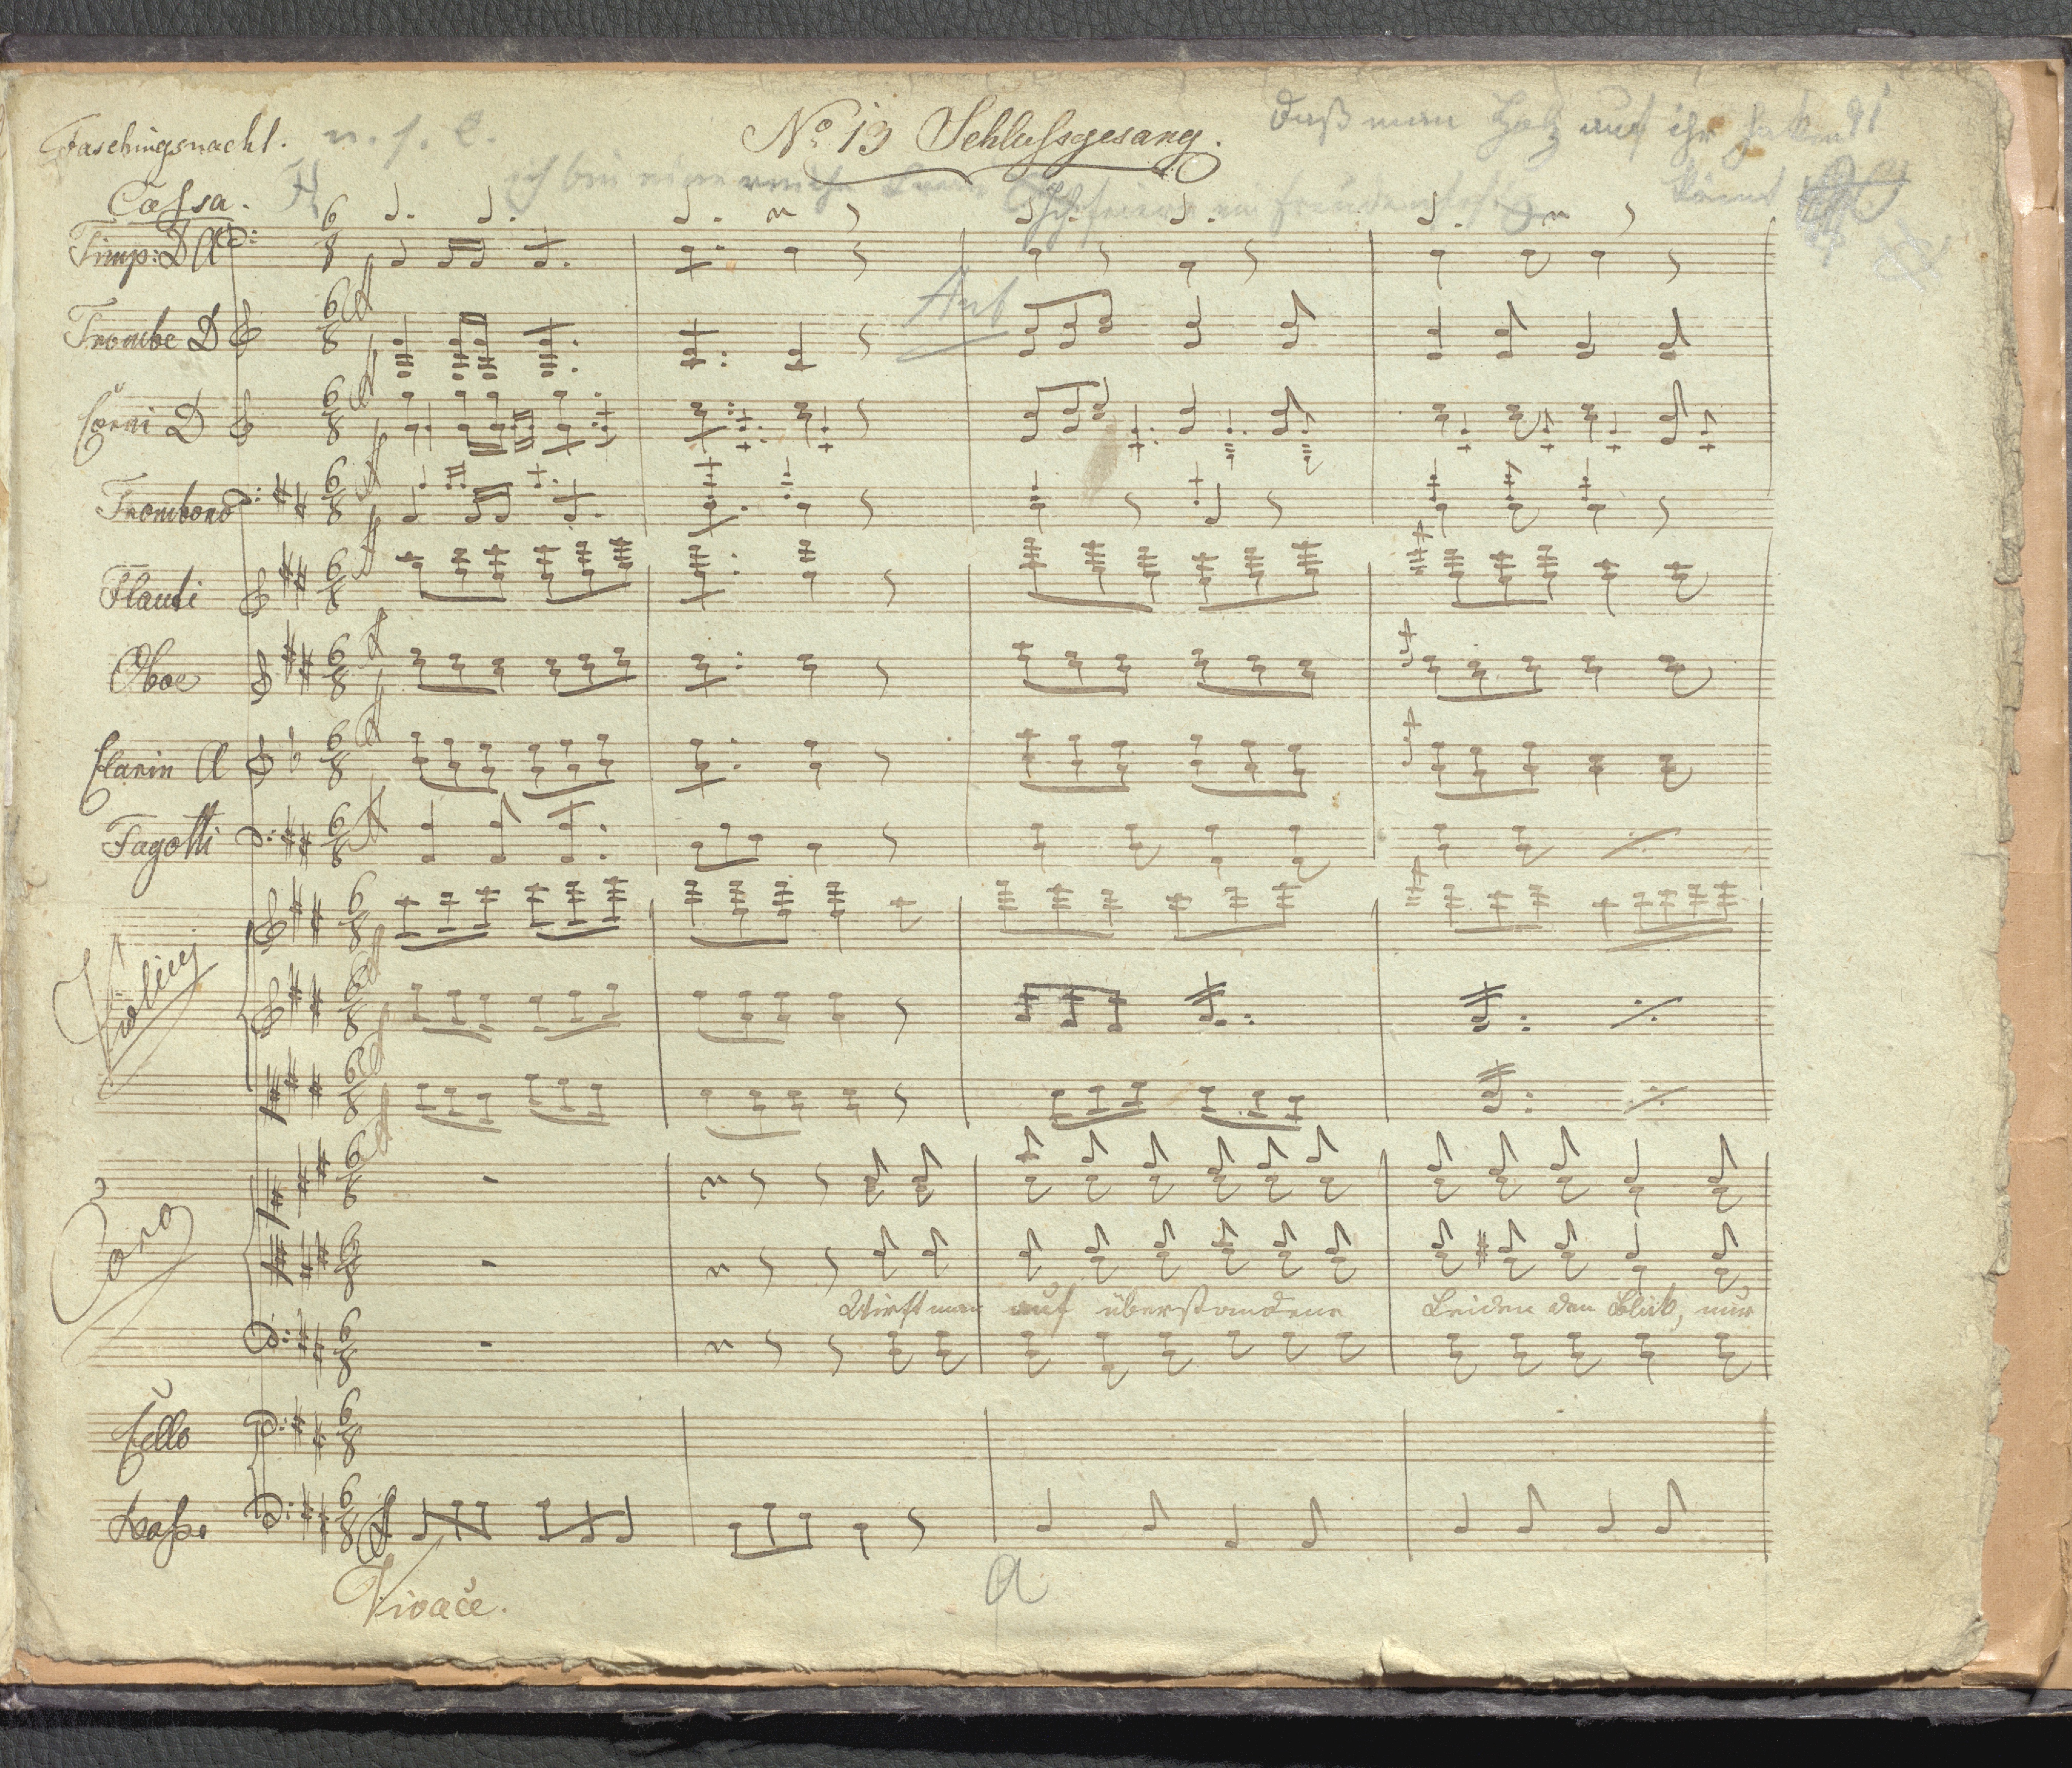 Faschingsnacht. No. 13 Schlussgesang.
Daß man Holz auf ihr
ich bin eine
Cassa.
Timp: D A
Trombe D
Auf
Corni D
Trombono
Flauti
Oboe
Clarin A
Fagotti
Violini
Coro
Wirft man auf überstandene Leiden den Blick, nur
Cello
Basso
Vivace.
a